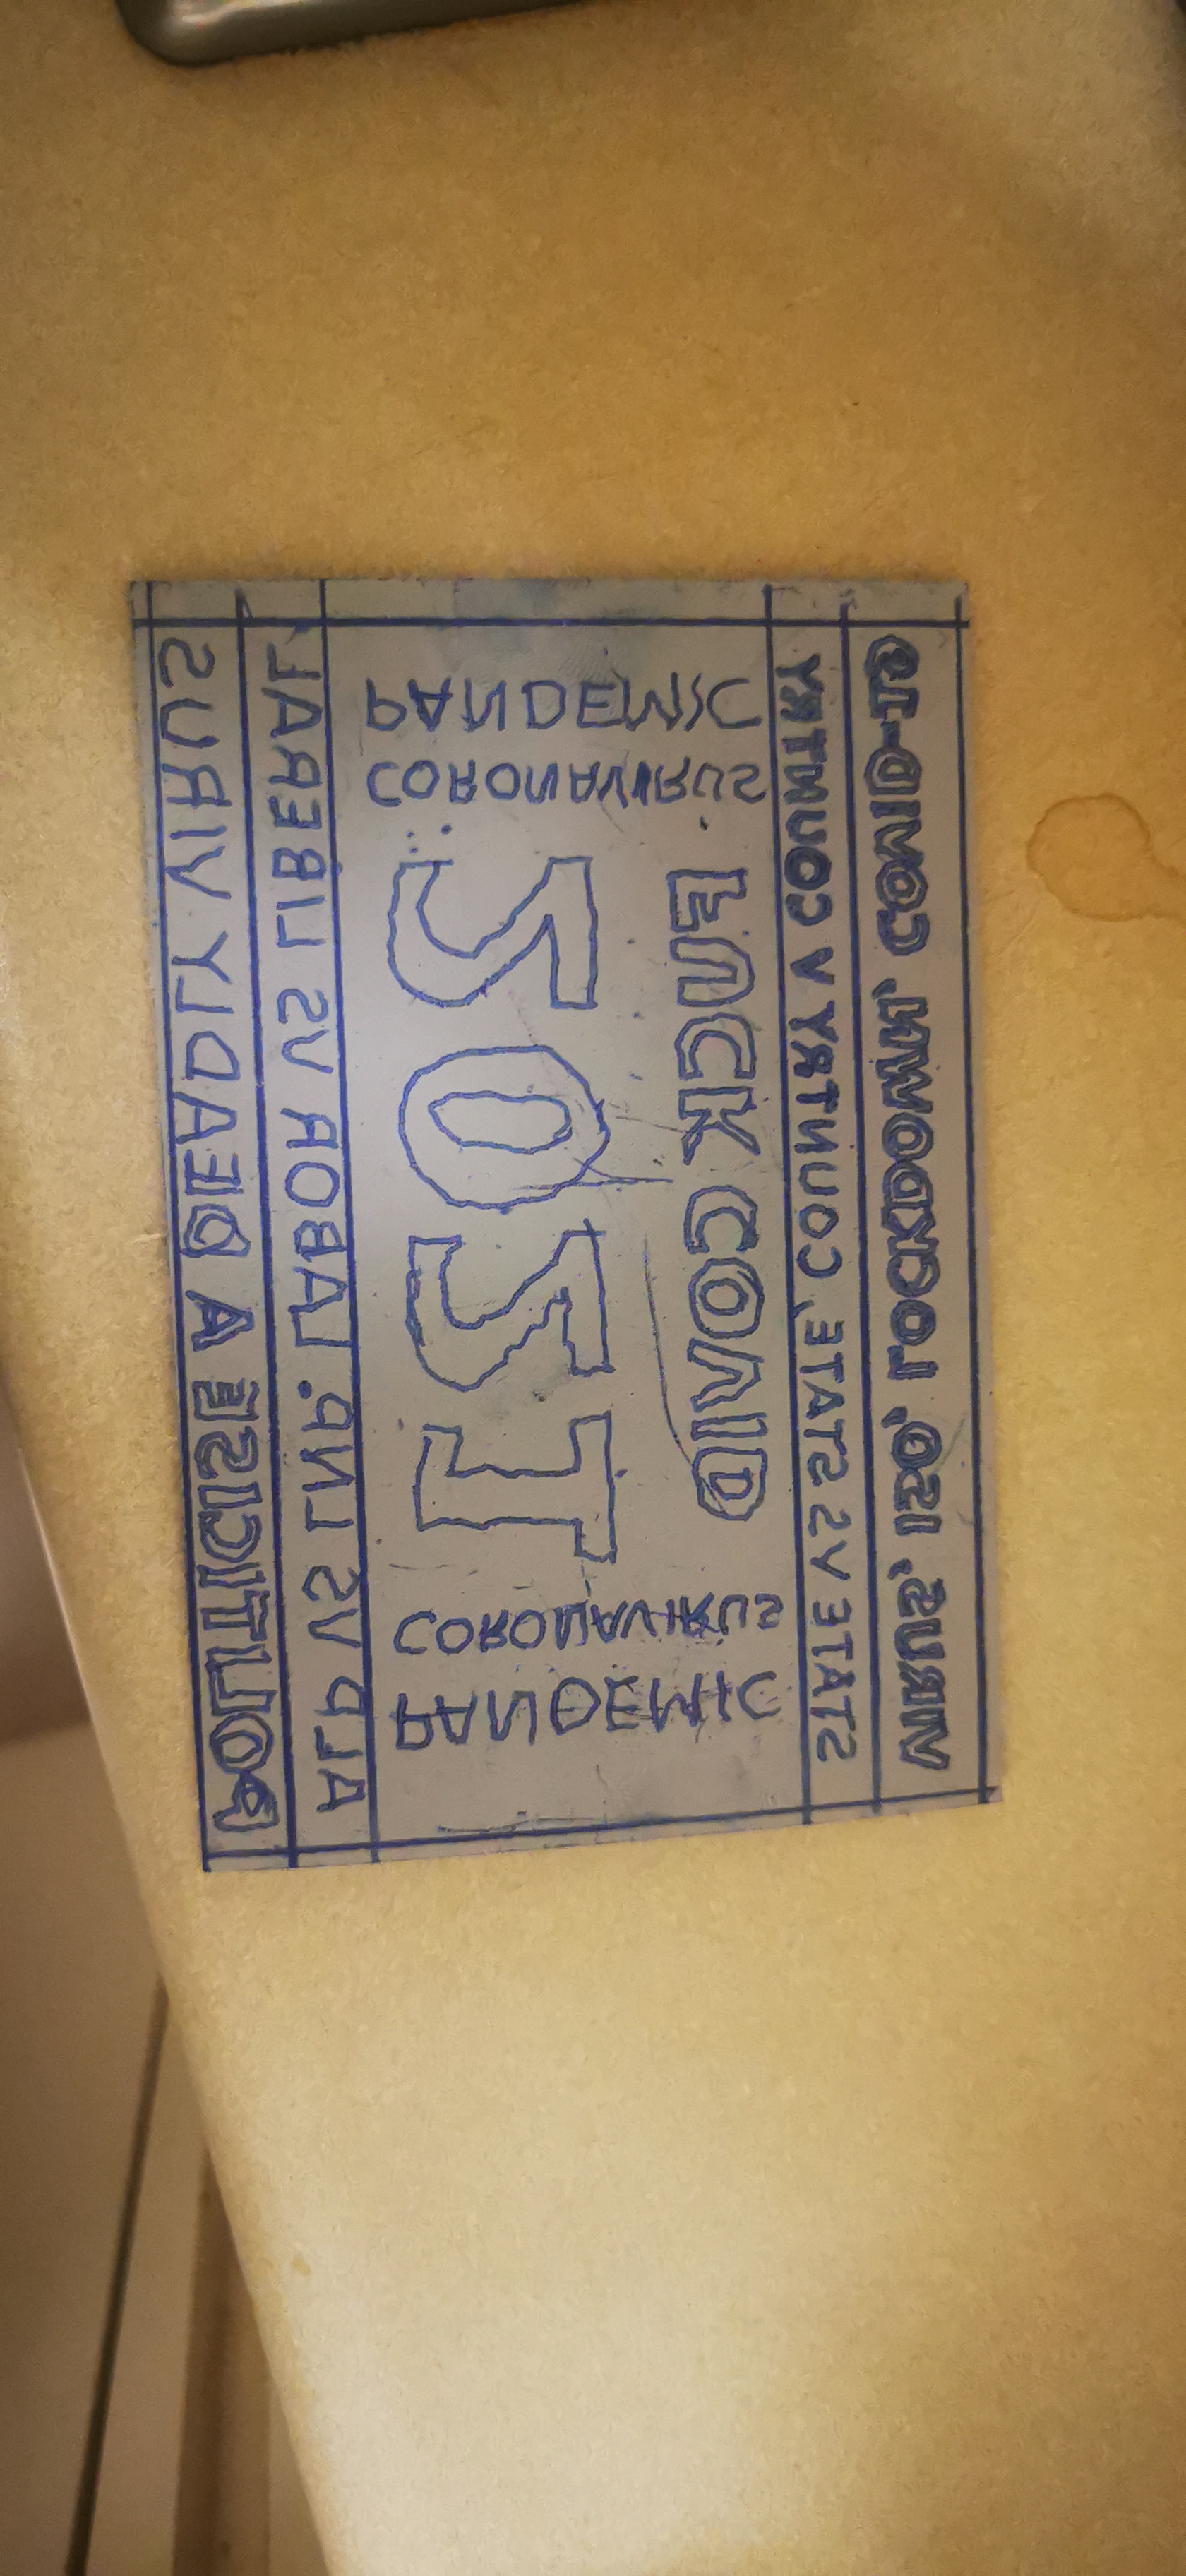 VIRUS, ISO, LOCKDOWN, COVID-19
STATE VS STATE, COUNTRY V COUNTRY
PANDEMIC
CORONAVIRUS
2021
FUCK COVID
CORONAVIRUS
PANDEMIC
ALP VS LNP. LABOR VS LIBERAL
POLITICISE A DEADLY VIRUS